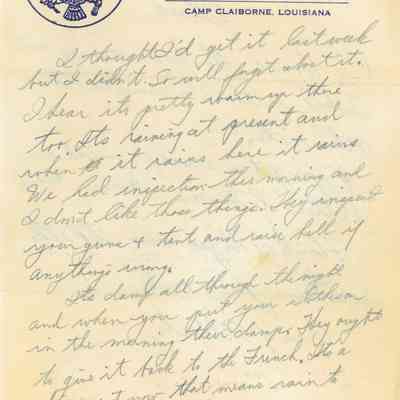 CAMP CLAIBORNE, LOUISIANA
I thought I'd get it last week
but I didn't. So will forget about it.
I hear its pretty warm up there
too. Its raining at present and
when it rains here it rains
We had inspection this morning and
I don't like those things. They inspect
your guns & tent and raise hell if
anythings wrong.
Its damp all through the night
and when you put your clothes on
in the morning their damp. They ought
to give it back to the French. Its a
that means rain to